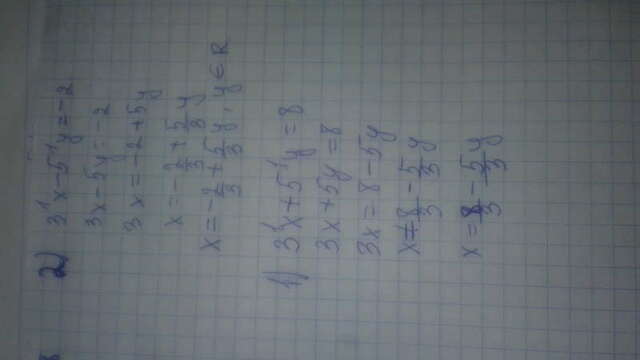 2) 3¹x-5¹y=-2
3x-5y=-2
3x=-2+5y
x=-2/3+5/3y
x=-2/3+5/3y, y∈R
1) 3¹x+5¹y=8
3x+5y=8
3x=8-5y
x=8/3-5/3y
x=8/3-5/3y